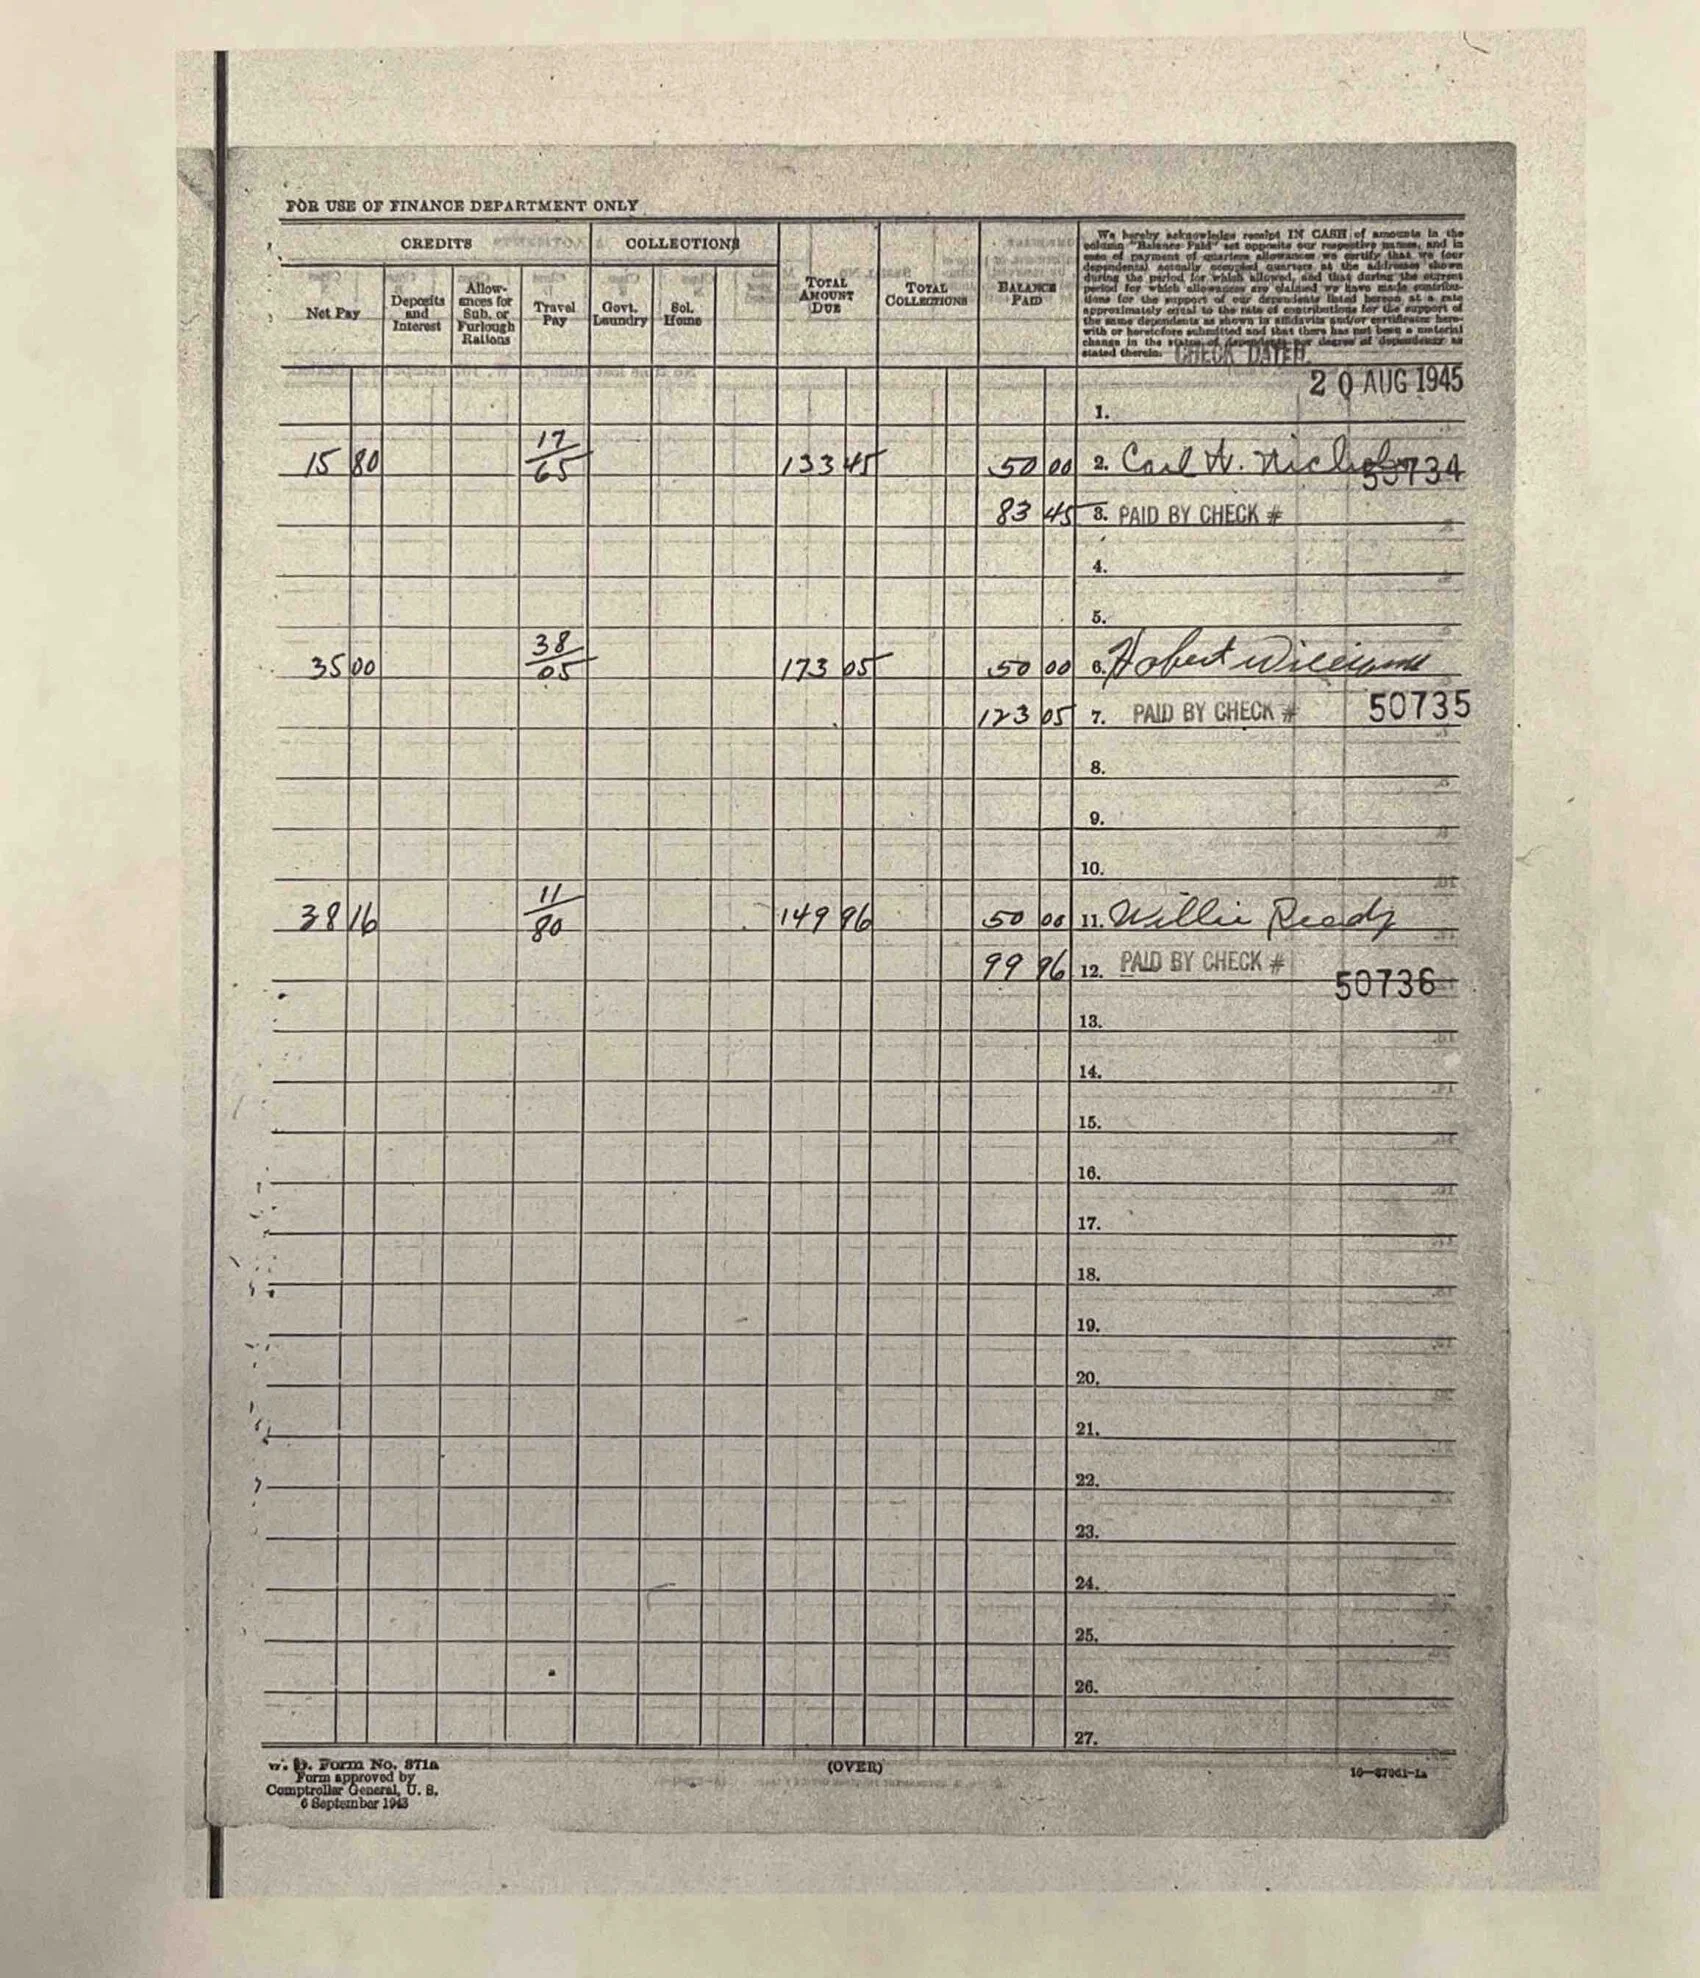 FOR USE OF FINANCE DEPARTMENT ONLY
CREDITS COLLECTIONS
Net Pay Deposits and Interest Allow-ances for Sub. or Furlough Rations Travel Pay Govt. Laundry Sol. Home TOTAL AMOUNT DUE TOTAL COLLECTIONS BALANCE PAID
We hereby acknowledge receipt IN CASH of amounts in the
column "Balance Paid" set opposite our respective names, and in
case of payment of quarters allowances we certify that we (our
dependents) actually occupied quarters at the addresses shown
during the period for which allowed, and that during the current
period for which allowances are claimed we have made contribu-
tions for the support of our dependents listed hereon at a rate
approximately equal to the rate of contributions for the support of
the same dependents as shown in affidavits and/or certificates here-
with or heretofore submitted and that there has not been a material
change in the status of dependents nor degree of dependency as
stated therein.
CHECK DATED
20 AUG 1945
1.
15 80 17/65 133 45 50 00 2. Carl W. 50734
83 45 3. PAID BY CHECK #
4.
5.
35 00 38/05 173 05 50 00 6. Hobert Williams
123 05 7. PAID BY CHECK # 50735
8.
9.
10.
38 16 11/80 149 96 50 00 11. Willie Ready
99 96 12. PAID BY CHECK #
50736
13.
14.
15.
16.
17.
18.
19.
20.
21.
22.
23.
24.
25.
26.
27.
W. D. Form No. 371a
Form approved by
Comptroller General, U. S.
6 September 1943
(OVER)
16—37061-1a